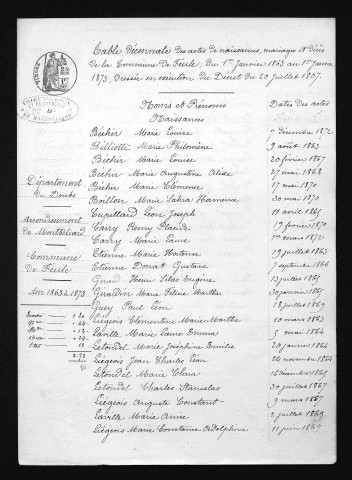 Table décennale des actes de naissances, mariages et décès
de la Commune de Feule, du 1er Janvier 1863 au 1er Janvier
1873, Dressée en exécution du Décret du 20 juillet 1807.
Noms et Prénoms
Dates des actes
Naissances
Béchir Marie Louise 7 Décembre 1872
Billiotte Marie Philomène 9 août 1863
Béchir Marie Louise 20 février 1867
Béchir Marie Augustine Alixe 27 mai 1868
Béchir Marie Clémence 17 mai 1870
Boillon Marie 30 mai 1870
Cupillard Léon Joseph 11 avril 1865
Carry Rémy Placide 19 février 1870
Carry Marie Laure 1er mars 1872
Etienne Marie Hortense 19 juillet 1863
Etienne Donat Gustave 7 septembre 1866
Girard Henri 13 juillet 1865
Girardin Marie Félicie Marthe 30 janvier 1865
Guey Paul Léon 18 juillet 1869
Liégeois Clémentine Marie Marthe 10 mars 1863
Laville Marie Laure Emma 5 mai 1864
Letondel Marie Joséphine Emilie 20 janvier 1864
Liégeois Jean Charles Léon 24 novembre 1864
Letondel Marie Clara 16 Décembre 1865
Letondel Charles Stanislas 30 juillet 1867
Liégeois Auguste Constant 9 mars 1867
Laville Marie Anne 2 juillet 1869
Liégeois Marie Constance Adolphine 11 juin 1869
Département
du Doubs
Arrondissement
de Montbéliard
Commune
de Feule
An 1863 à 1873